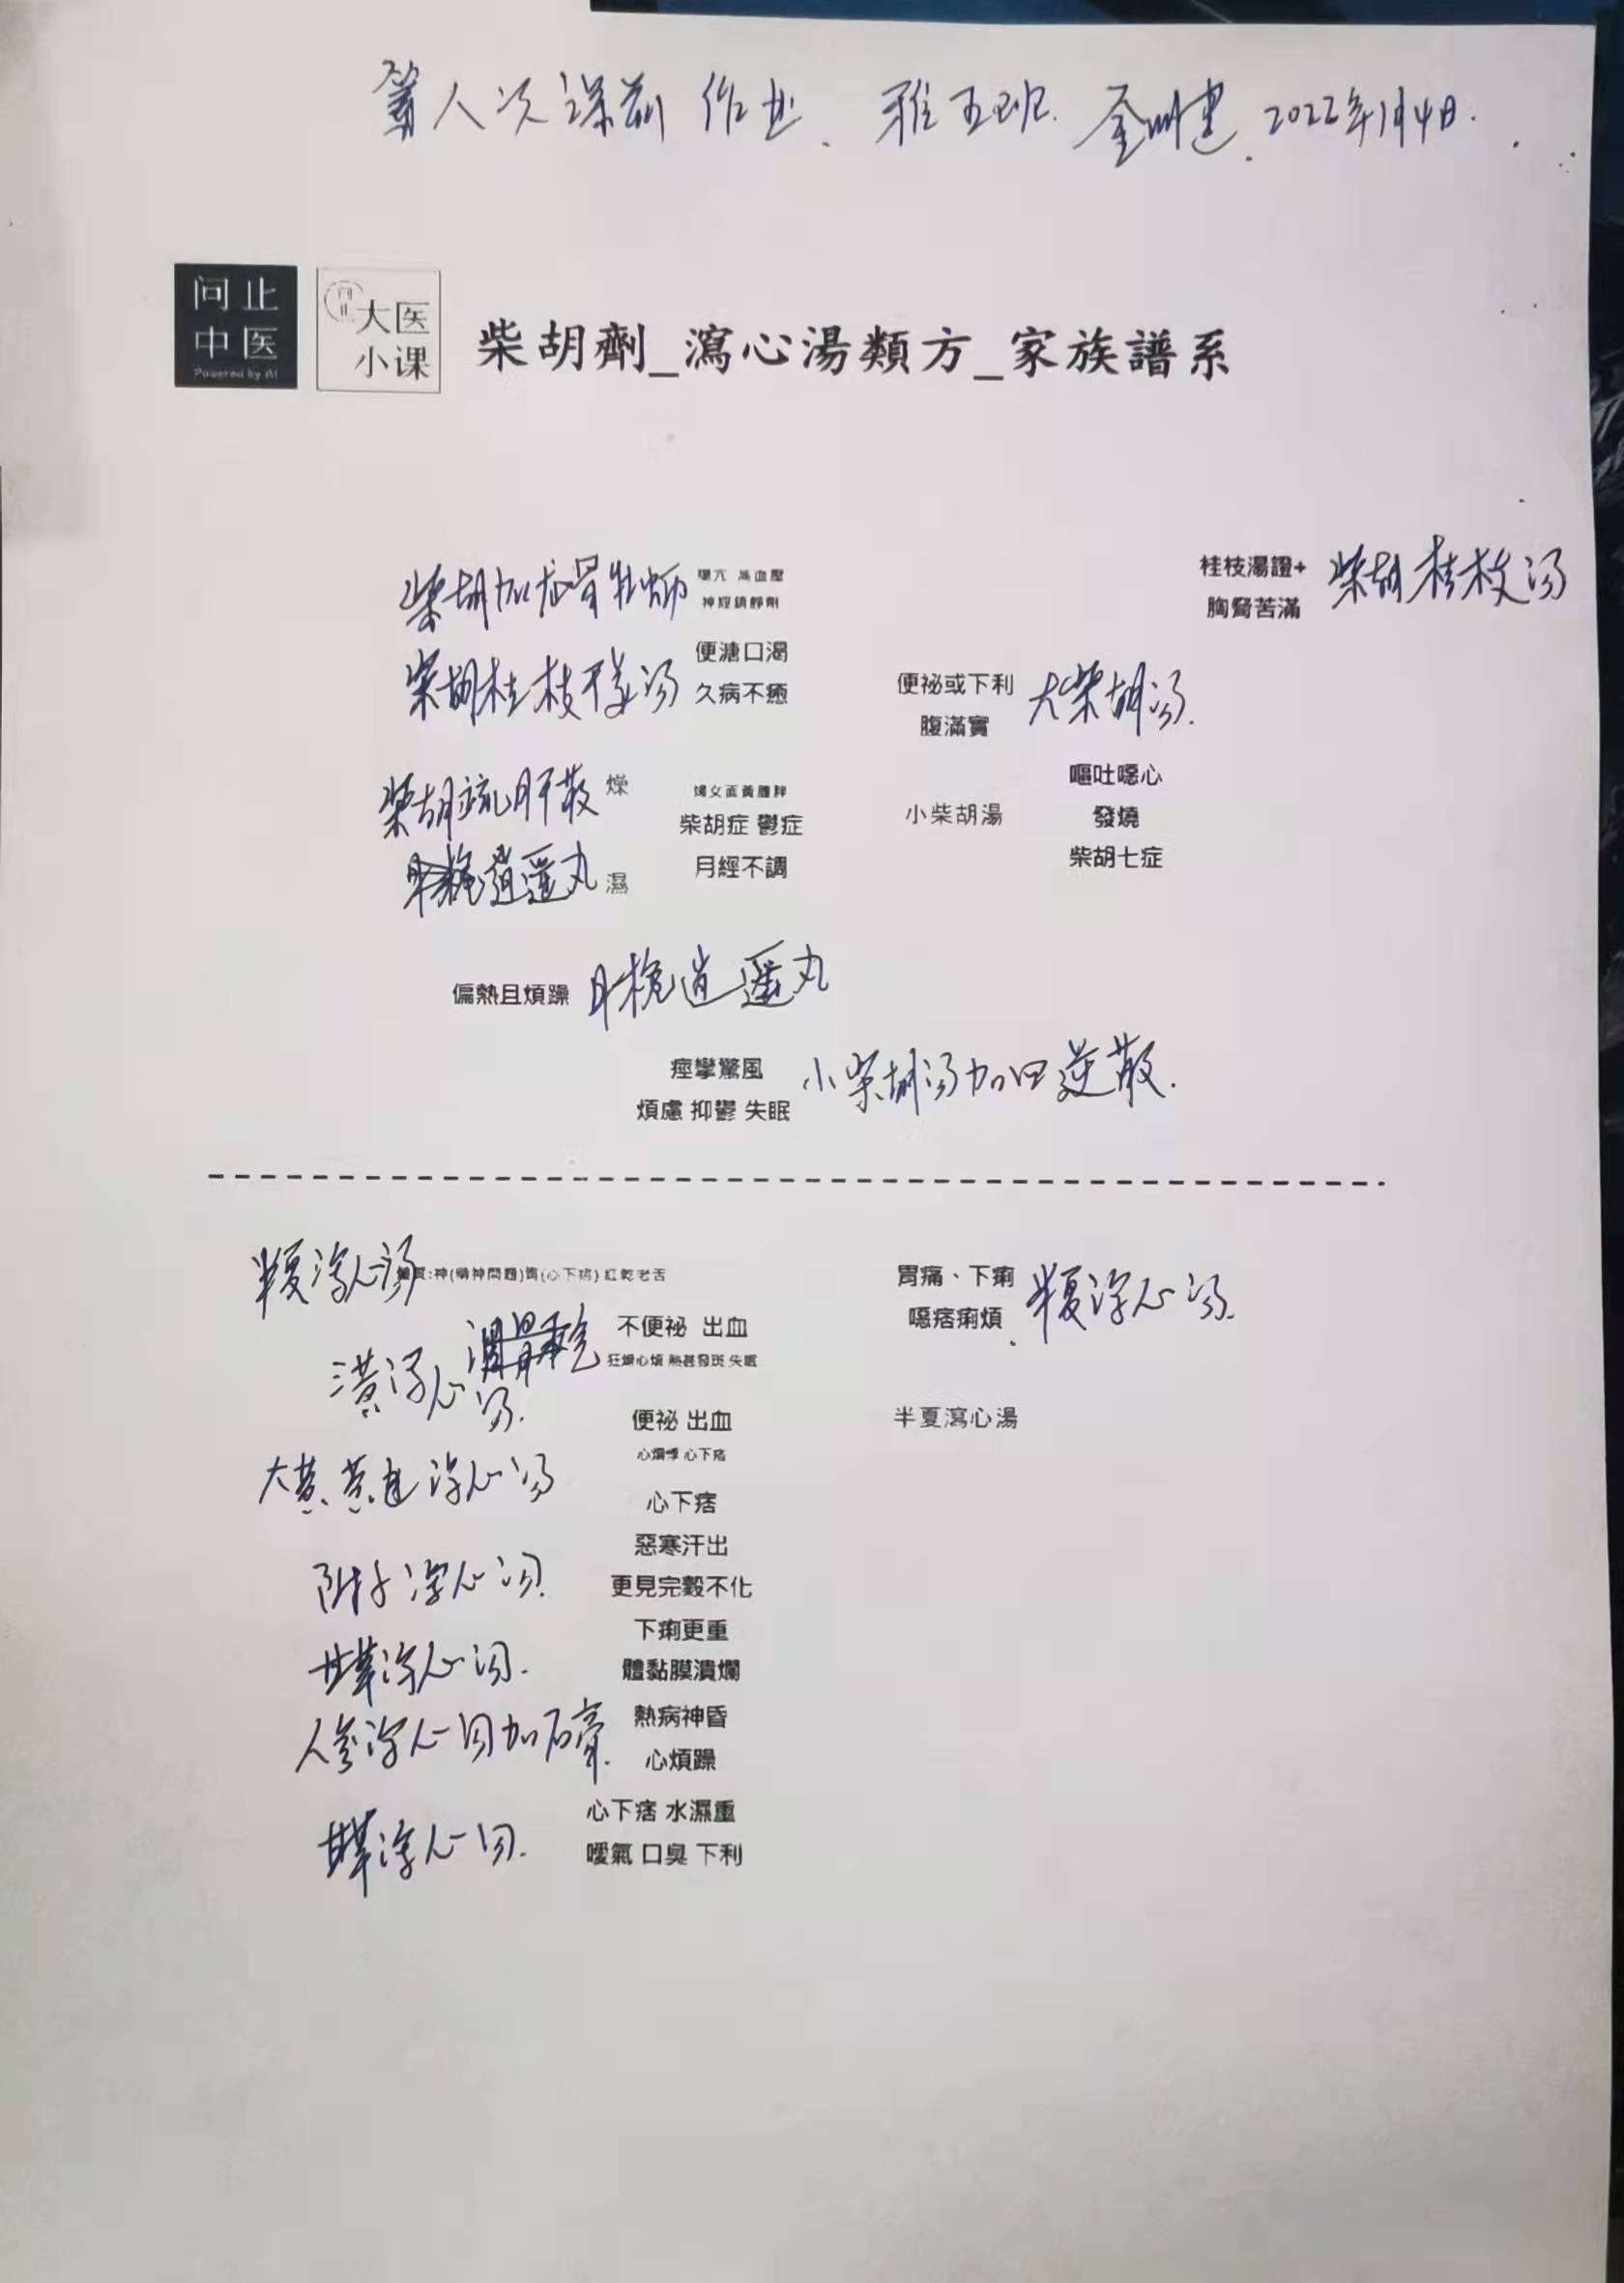 第八次课前作业、雅五班. 2022年1月4日.
问止
中医
Powered by AI
大医
小课
柴胡劑_瀉心湯類方_家族譜系
柴胡加龙骨牡蛎
曝亢 高血壓
神經鎮靜劑
桂枝湯證+
胸脅苦滿
柴胡桂枝汤
柴胡桂枝干姜汤
便溏口渴
久病不癒
便祕或下利
腹滿實
大柴胡汤.
柴胡疏肝散
燥
婦女面黃體胖
柴胡症 鬱症
月經不調
小柴胡湯
嘔吐噁心
發燒
柴胡七症
逍遥丸
濕
偏熱且煩躁
丹栀逍遥丸
痙攣驚風
煩慮 抑鬱 失眠
小柴胡汤加四逆散.
半夏泻心汤
:神(精神問題)胃(心下痞) 紅乾老舌
胃痛、下痢
噁痞痢煩
半夏泻心汤.
不便祕 出血
狂煩心煩 熱甚發斑 失眠
三黄泻心汤.
便祕 出血
心煩悸 心下痞
半夏瀉心湯
大黄黄连泻心汤
心下痞
惡寒汗出
附子泻心汤.
更見完穀不化
下痢更重
體黏膜潰爛
甘草泻心汤.
熱病神昏
心煩躁
人参泻心汤加石膏.
心下痞 水濕重
噯氣 口臭 下利
甘草泻心汤.